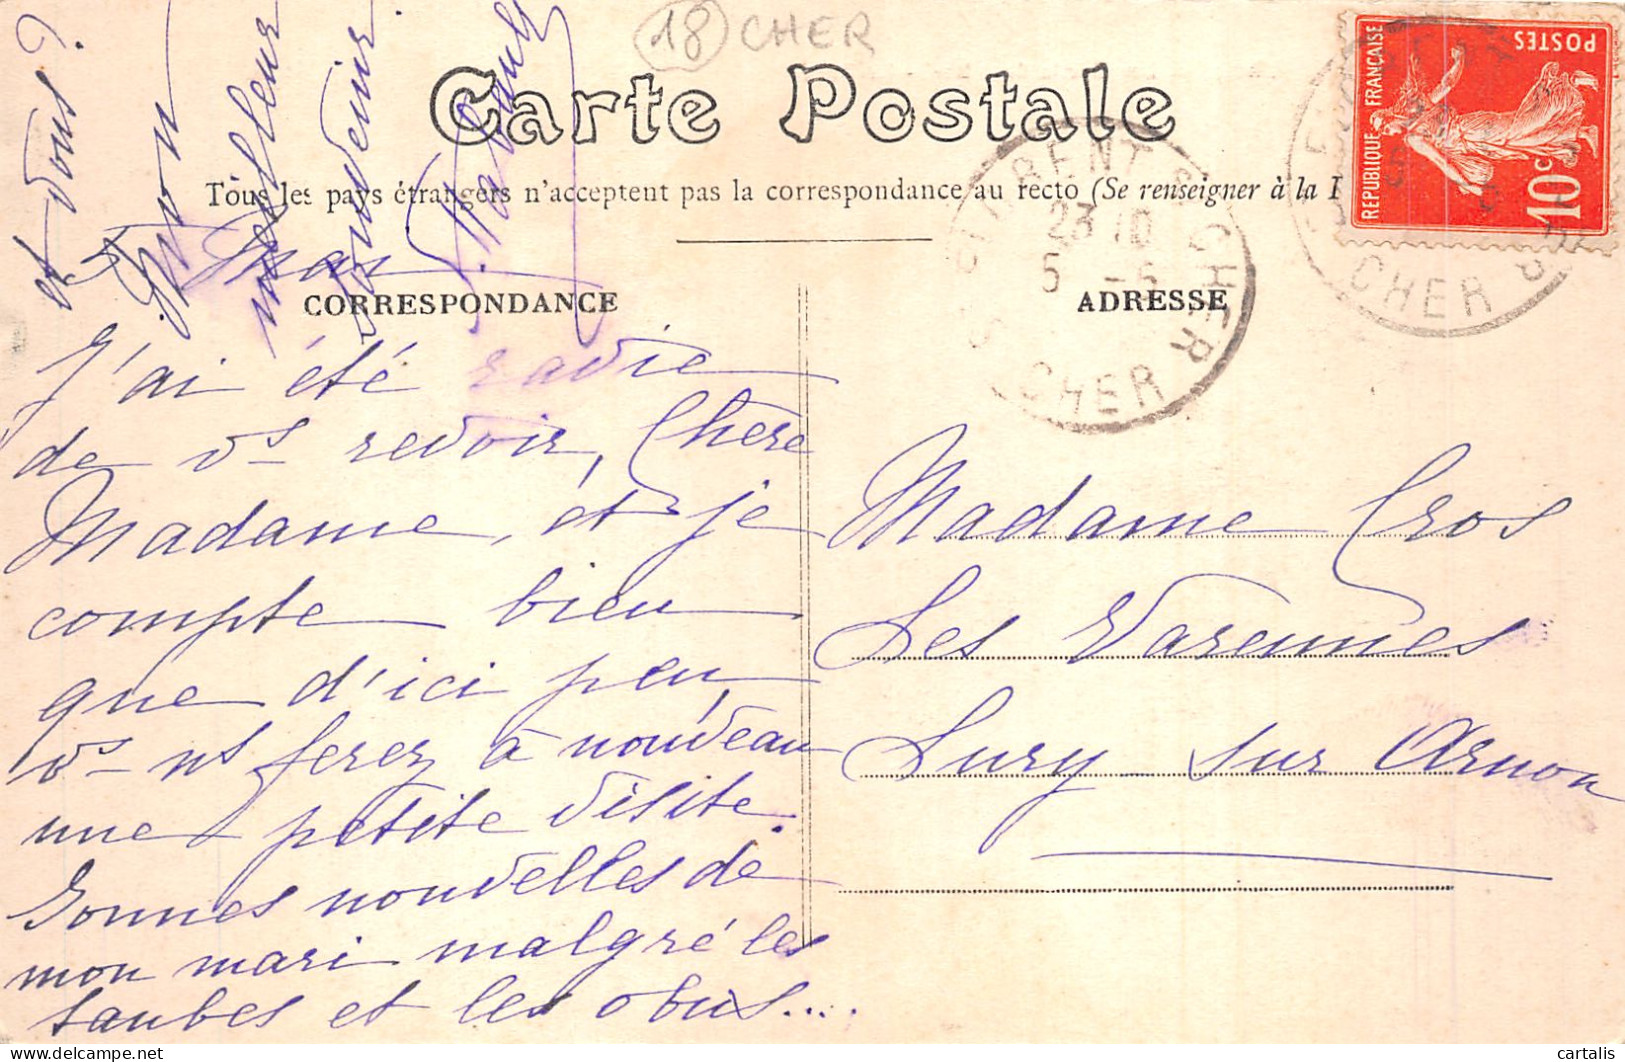 18 CHER
Carte Postale
Tous les pays étrangers n'acceptent pas la correspondance au recto (Se renseigner à la
CORRESPONDANCE
ADRESSE
REPUBLIQUE FRANÇAISE
POSTES
10c
23 10
5 - 5
CHER
CHER
J'ai été ravie
de vs revoir, Chère
Madame, et je
compte bien
que d'ici peu,
vs ns ferez à nouveau
une petite visite.
Bonnes nouvelles de
mon mari malgré les
taubes et les obus....
et vous?
Mon
meilleur
souvenir
Madame Cros
Les Varennes
Lury sur Arnon
cartalis